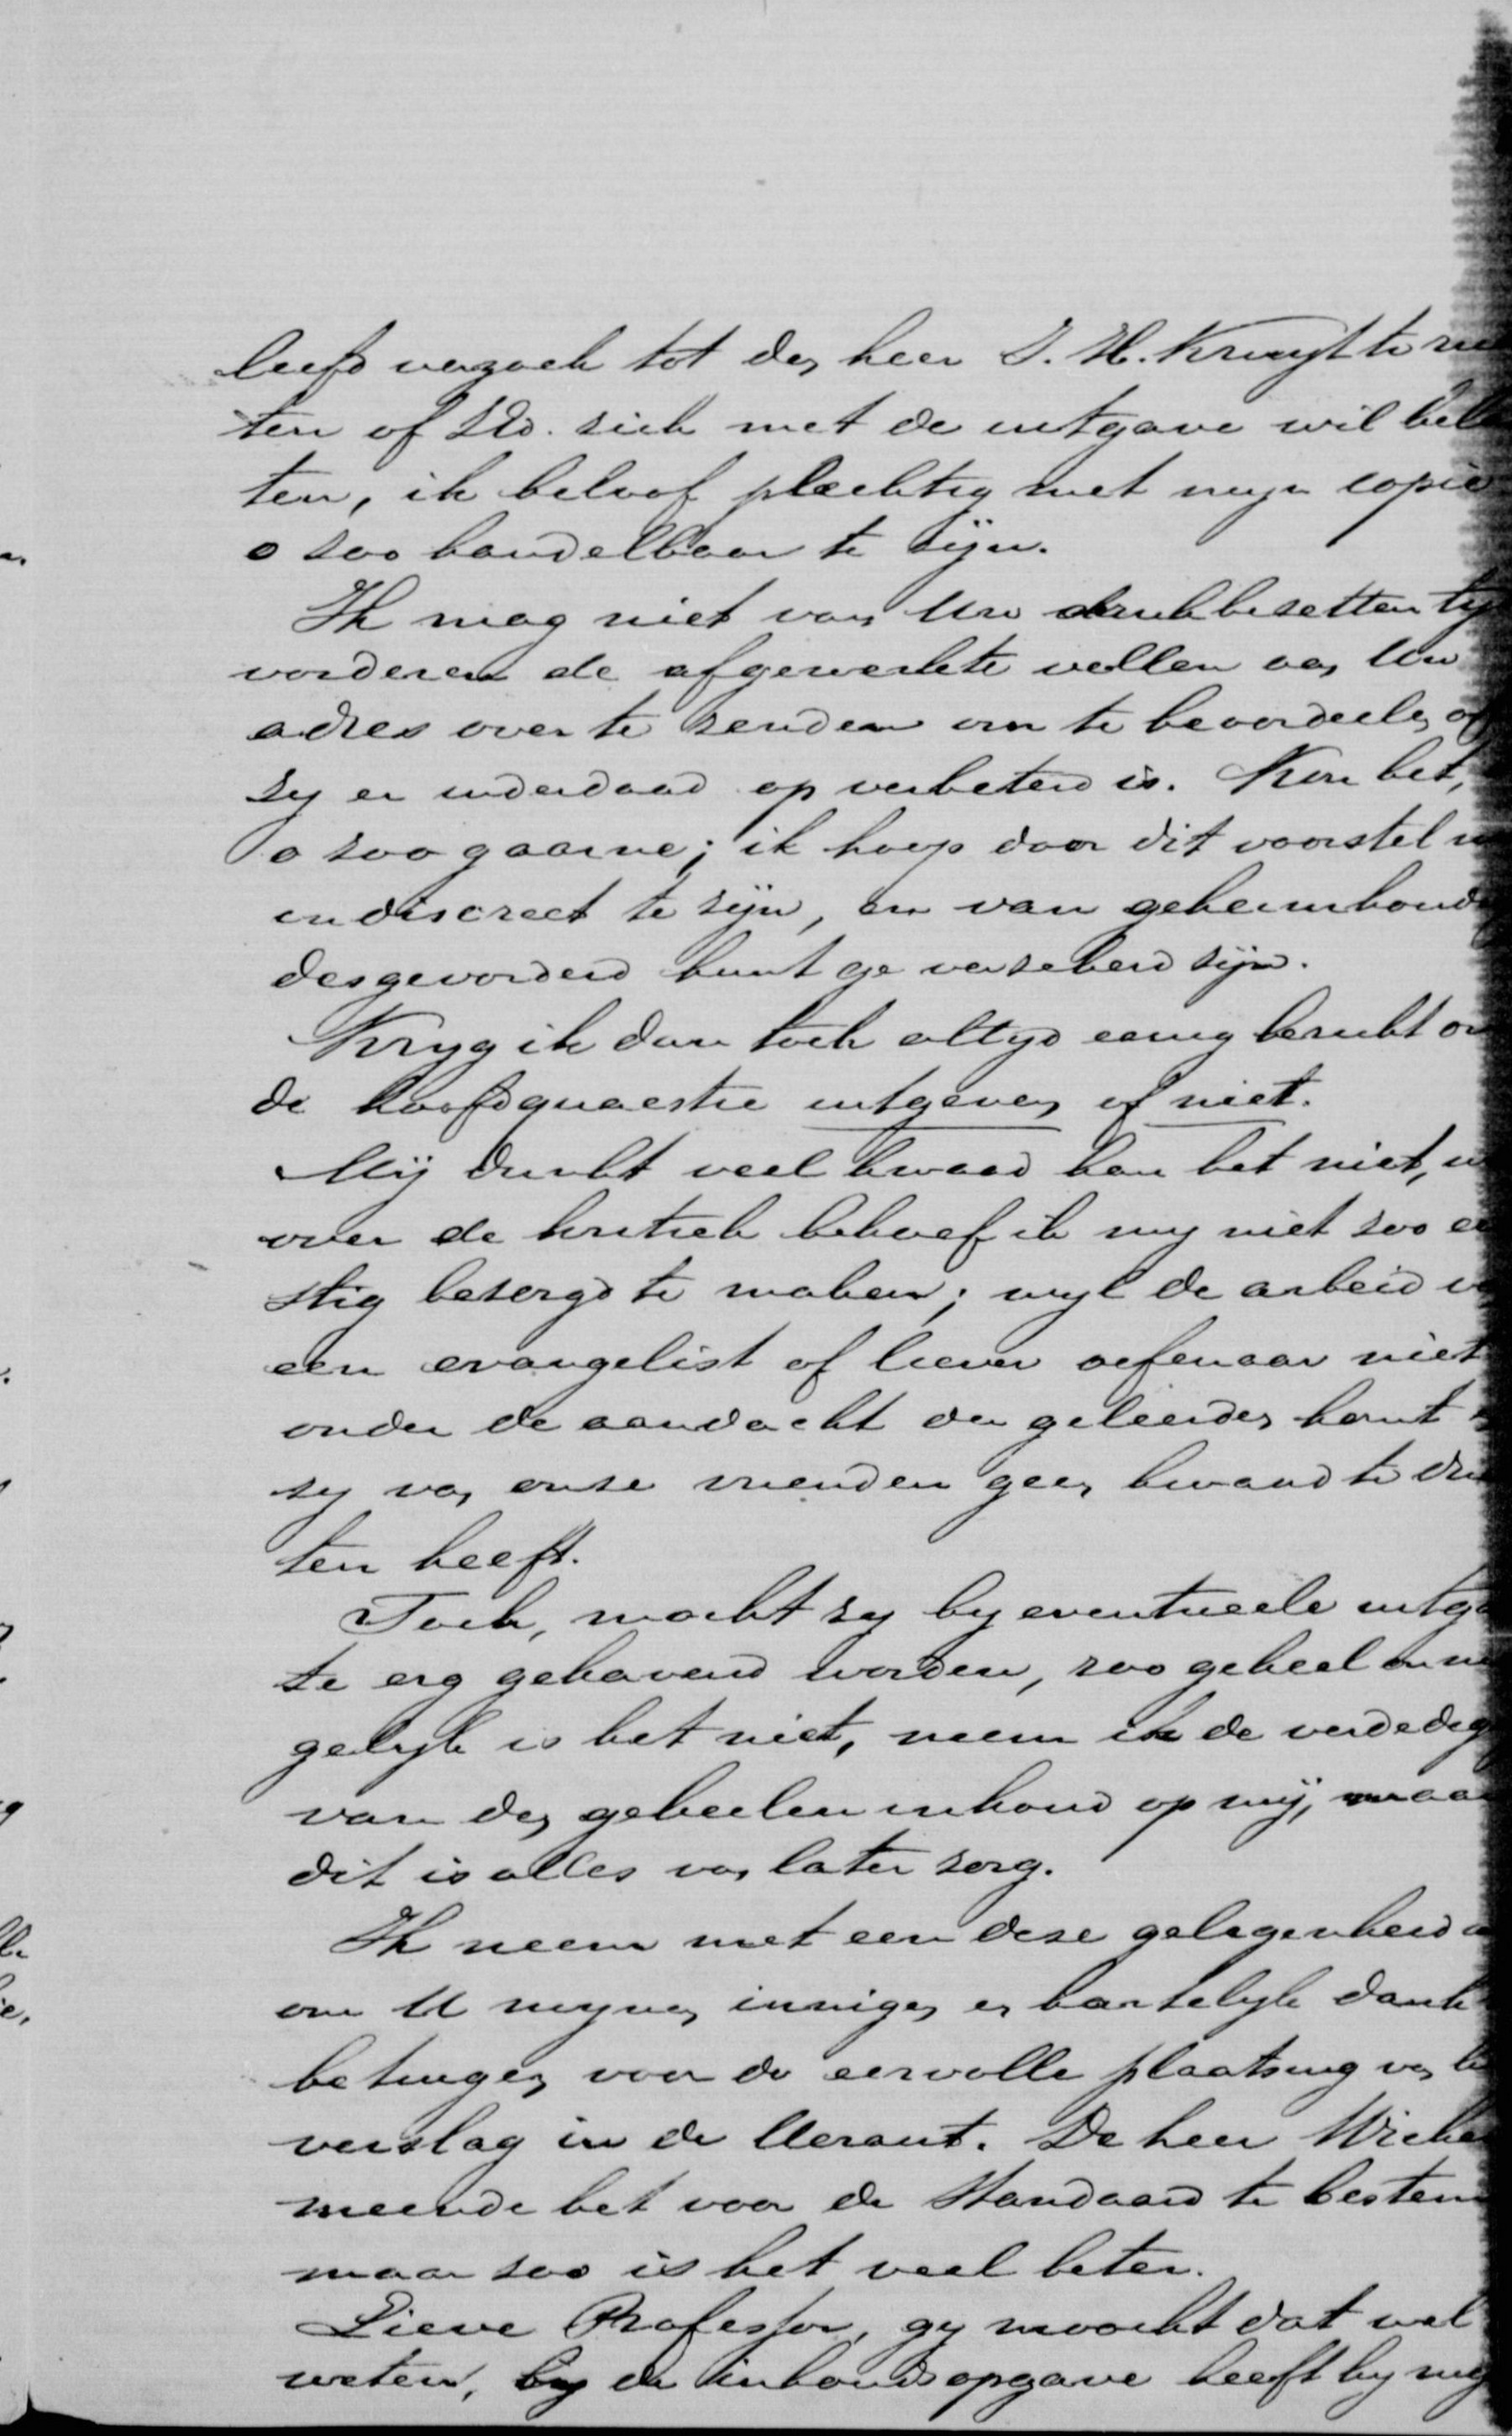 leefd verzoek tot den heer J. H. Kruyt te
ten of ZEd. sich met de uitgave wil bel
ten, ik beloof plechtig met mijn copie
o soo handelbaar te sijn.
Ik mag niet van Uw drukbesetten ty
vorderen de afgewerkte vellen aan Uw
adres over te senden om te beoordeelen of
sy er inderdaad op verbeterd is. Kon het,
o soo gaarne; ik hoop door dit voorstel
indiscreet te sijn, en van geheimhoud
desgevorderd kunt ge verseherd sijn.
Kryg ik dan toch altyd eenig bericht
de hoofdquaestie uitgeven of niet.
Mij dunkt veel kwaad kan het niet,
over de kritiek behoef ik my niet soo
stig besorgd te maken; wyl de arbeid
een evangelist of liever oefenaar niet
onder de aandacht der geleerden komt
sy van onse vrienden geen kwaad te
ten heeft.
Toch, mocht sy by eventueele uitga
te erg gehavend worden, soo geheel
gelyk is het niet, neem ik de verdedig
van den geheelen inhoud op mij, maar
dit is alles van later sorg.
Ik neem met een dese gelegenheid
om U mynen innigen en hartelyk dank
betuigen voor de eervolle plaatsing van
verslag in de Heraut. De heer
meende het voor de Standaard te bestem
maar soo is het veel beter.
Lieve Professor, gy moocht dat wel
weten, by de inhoudsopgave heeft by my